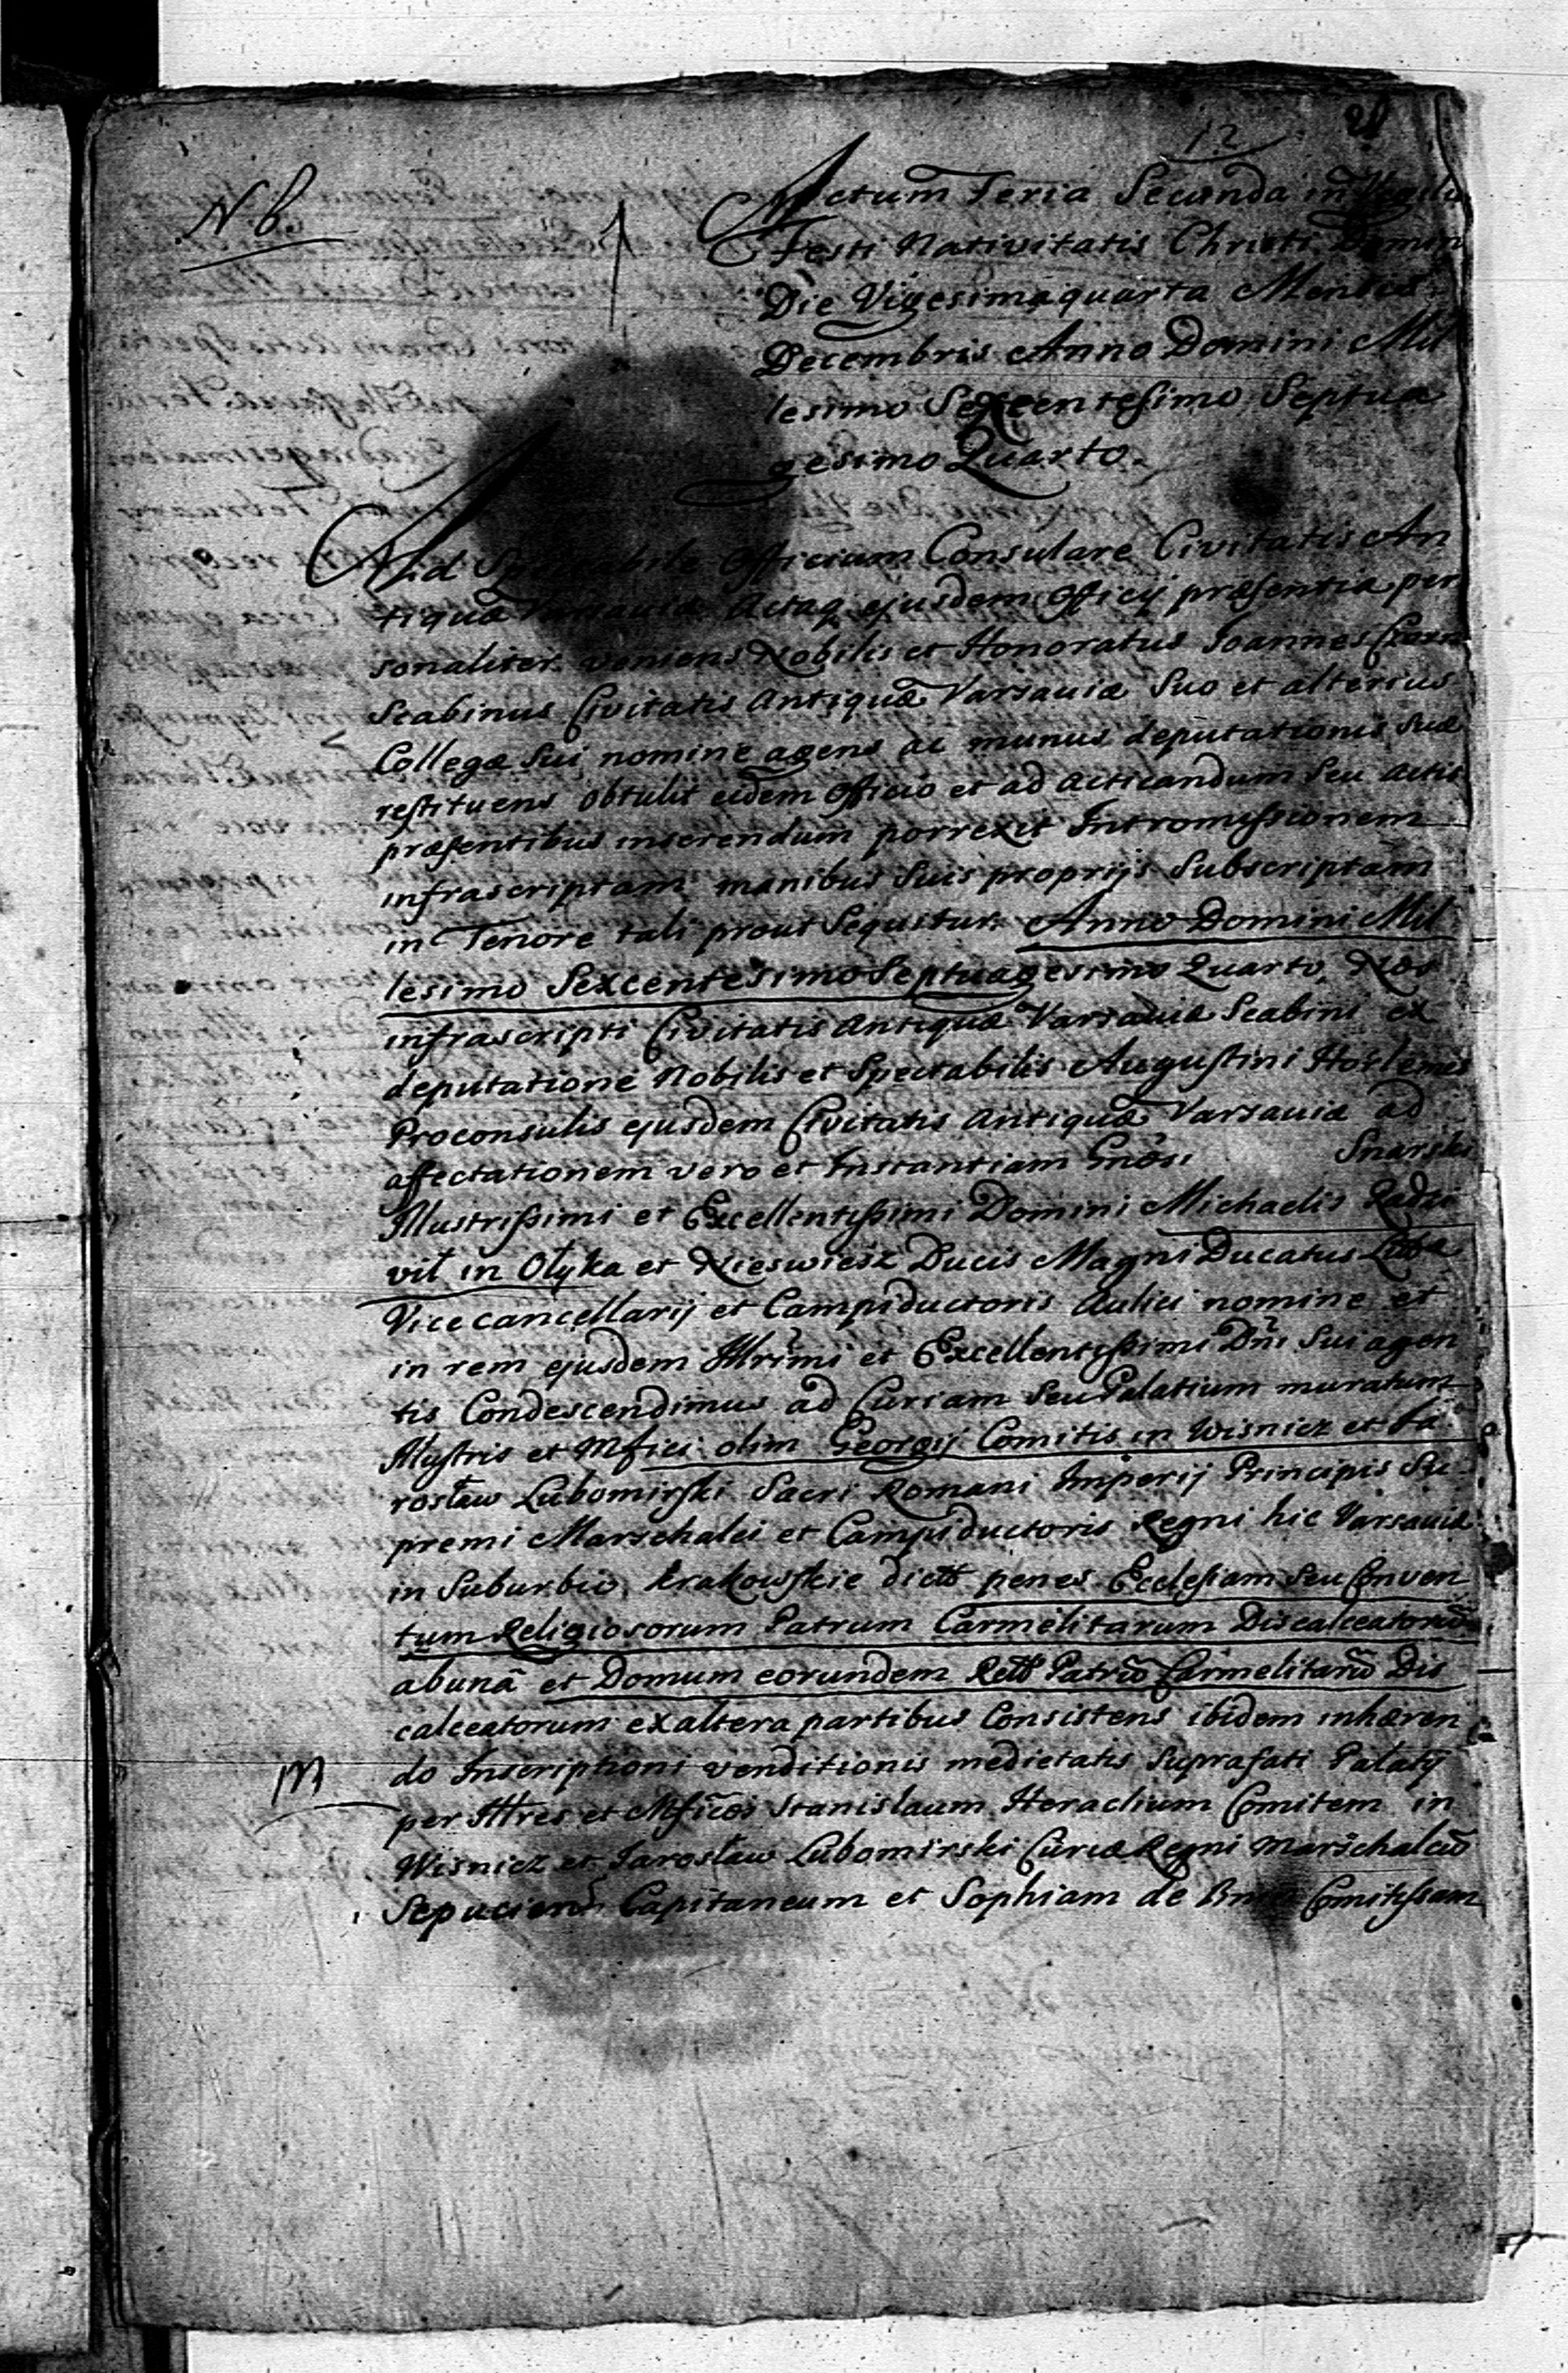 12
28
N. b.
Actum Feria Secunda in Vigilia
Festi Nativitatis Christi Domin
Die Vigesima quarta Mensis
Decembris Anno Domini Mil
lesimo Sexcentesimo Septua
gesimo Quarto.
Ad Spectabile Officium Consulare Civitatis An
tiquæ Varsaviæ Actaq ejusdem Officij præsentia per
sonaliter veniens Nobilis et Honoratus Joannes
Scabinus Civitatis Antiquæ Varsaviæ Suo et alterius
Collegæ Sui nomine agens ac munus deputationis Suæ
restituens obtulit eidem Officio et ad acticandum Seu Actis
præsentibus inserendum porrexit Intromissionem
infrascriptam manibus Suis proprijs Subscriptam
in Tenore tali prout Sequitur. Anno Domini Mil
lesimo Sexcentesimo Septuagesimo Quarto Nos
infrascripti Civitatis Antiquæ Varsaviæ Scabini ex
deputatione Nobilis et Spectabilis Augustini
Proconsulis ejusdem Civitatis Antiquæ Varsaviæ ad
affectationem vero et Instantiam Gnosi Snarski
Illustrissimi et Excellentissimi Domini Michaelis Radzi
vił in Ołyka et Nieswiesz Ducis Magni Ducatus
Vicecancellarij et Campiductoris Aulici nomine et
in rem ejusdem Illrimi et Excellentissimi Dñi Sui agen
tis Condescendimus ad Curiam Seu Palatium muratum
Illustris et Mfici olim Georgij Comitis in Wisnicz et Ja
rosław Lubomirski Sacri Romani Imperij Principis Su
premi Marschalci et Campiductoris Regni hic Varsaviæ
in Suburbio Krakowskie dicto penes Ecclesiam Seu Conven
tum Religiosorum Patrum Carmelitarum Discalceatorum
ab unâ et Domum eorundem Patrũ Carmelitarũ Dis
calceatorum ex altera partibus Consistens ibidem inhæren
do Inscriptioni venditionis medietatis Suprafati Palatij
per Illtres et Mficos Stanislaum Heraclium Comitem in
Wisnicz et Jarosław Lubomirski Curiæ Regni Marschalcũ
Capitaneum et Sophiam de Comitissam